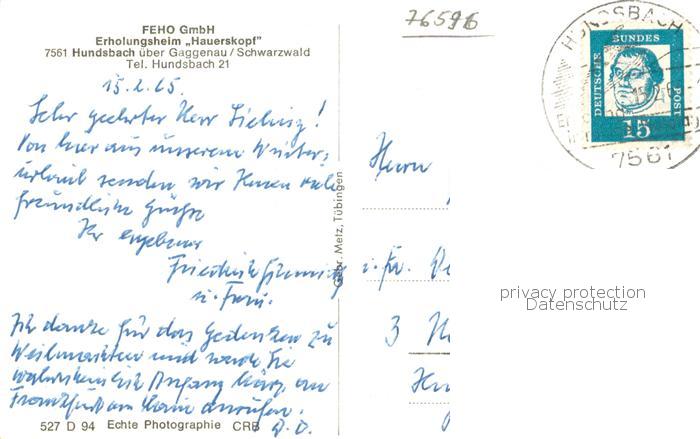 FEHO GmbH
Erholungsheim „Hauerskopf"
7561 Hundsbach über Gaggenau / Schwarzwald
Tel. Hundsbach 21
15.2.65
Sehr geehrter Herr
Von hier aus unserem Winter-
urlaub senden wir Ihnen viele
freundliche Grüße
Ihr ergebener
Friedrich
u. Frau.
Ich danke für das Gedenken zu
Weihnachten und werde Sie
wahrscheinlich Anfang März in
Frankfurt am Main anrufen.
D.O.
527 D 94 Echte Photographie CRB
Gebr. Metz, Tübingen
76596
HUNDSBACH
7561
DEUTSCHE
BUNDES
POST
15
Herrn
3
privacy protection
Datenschutz